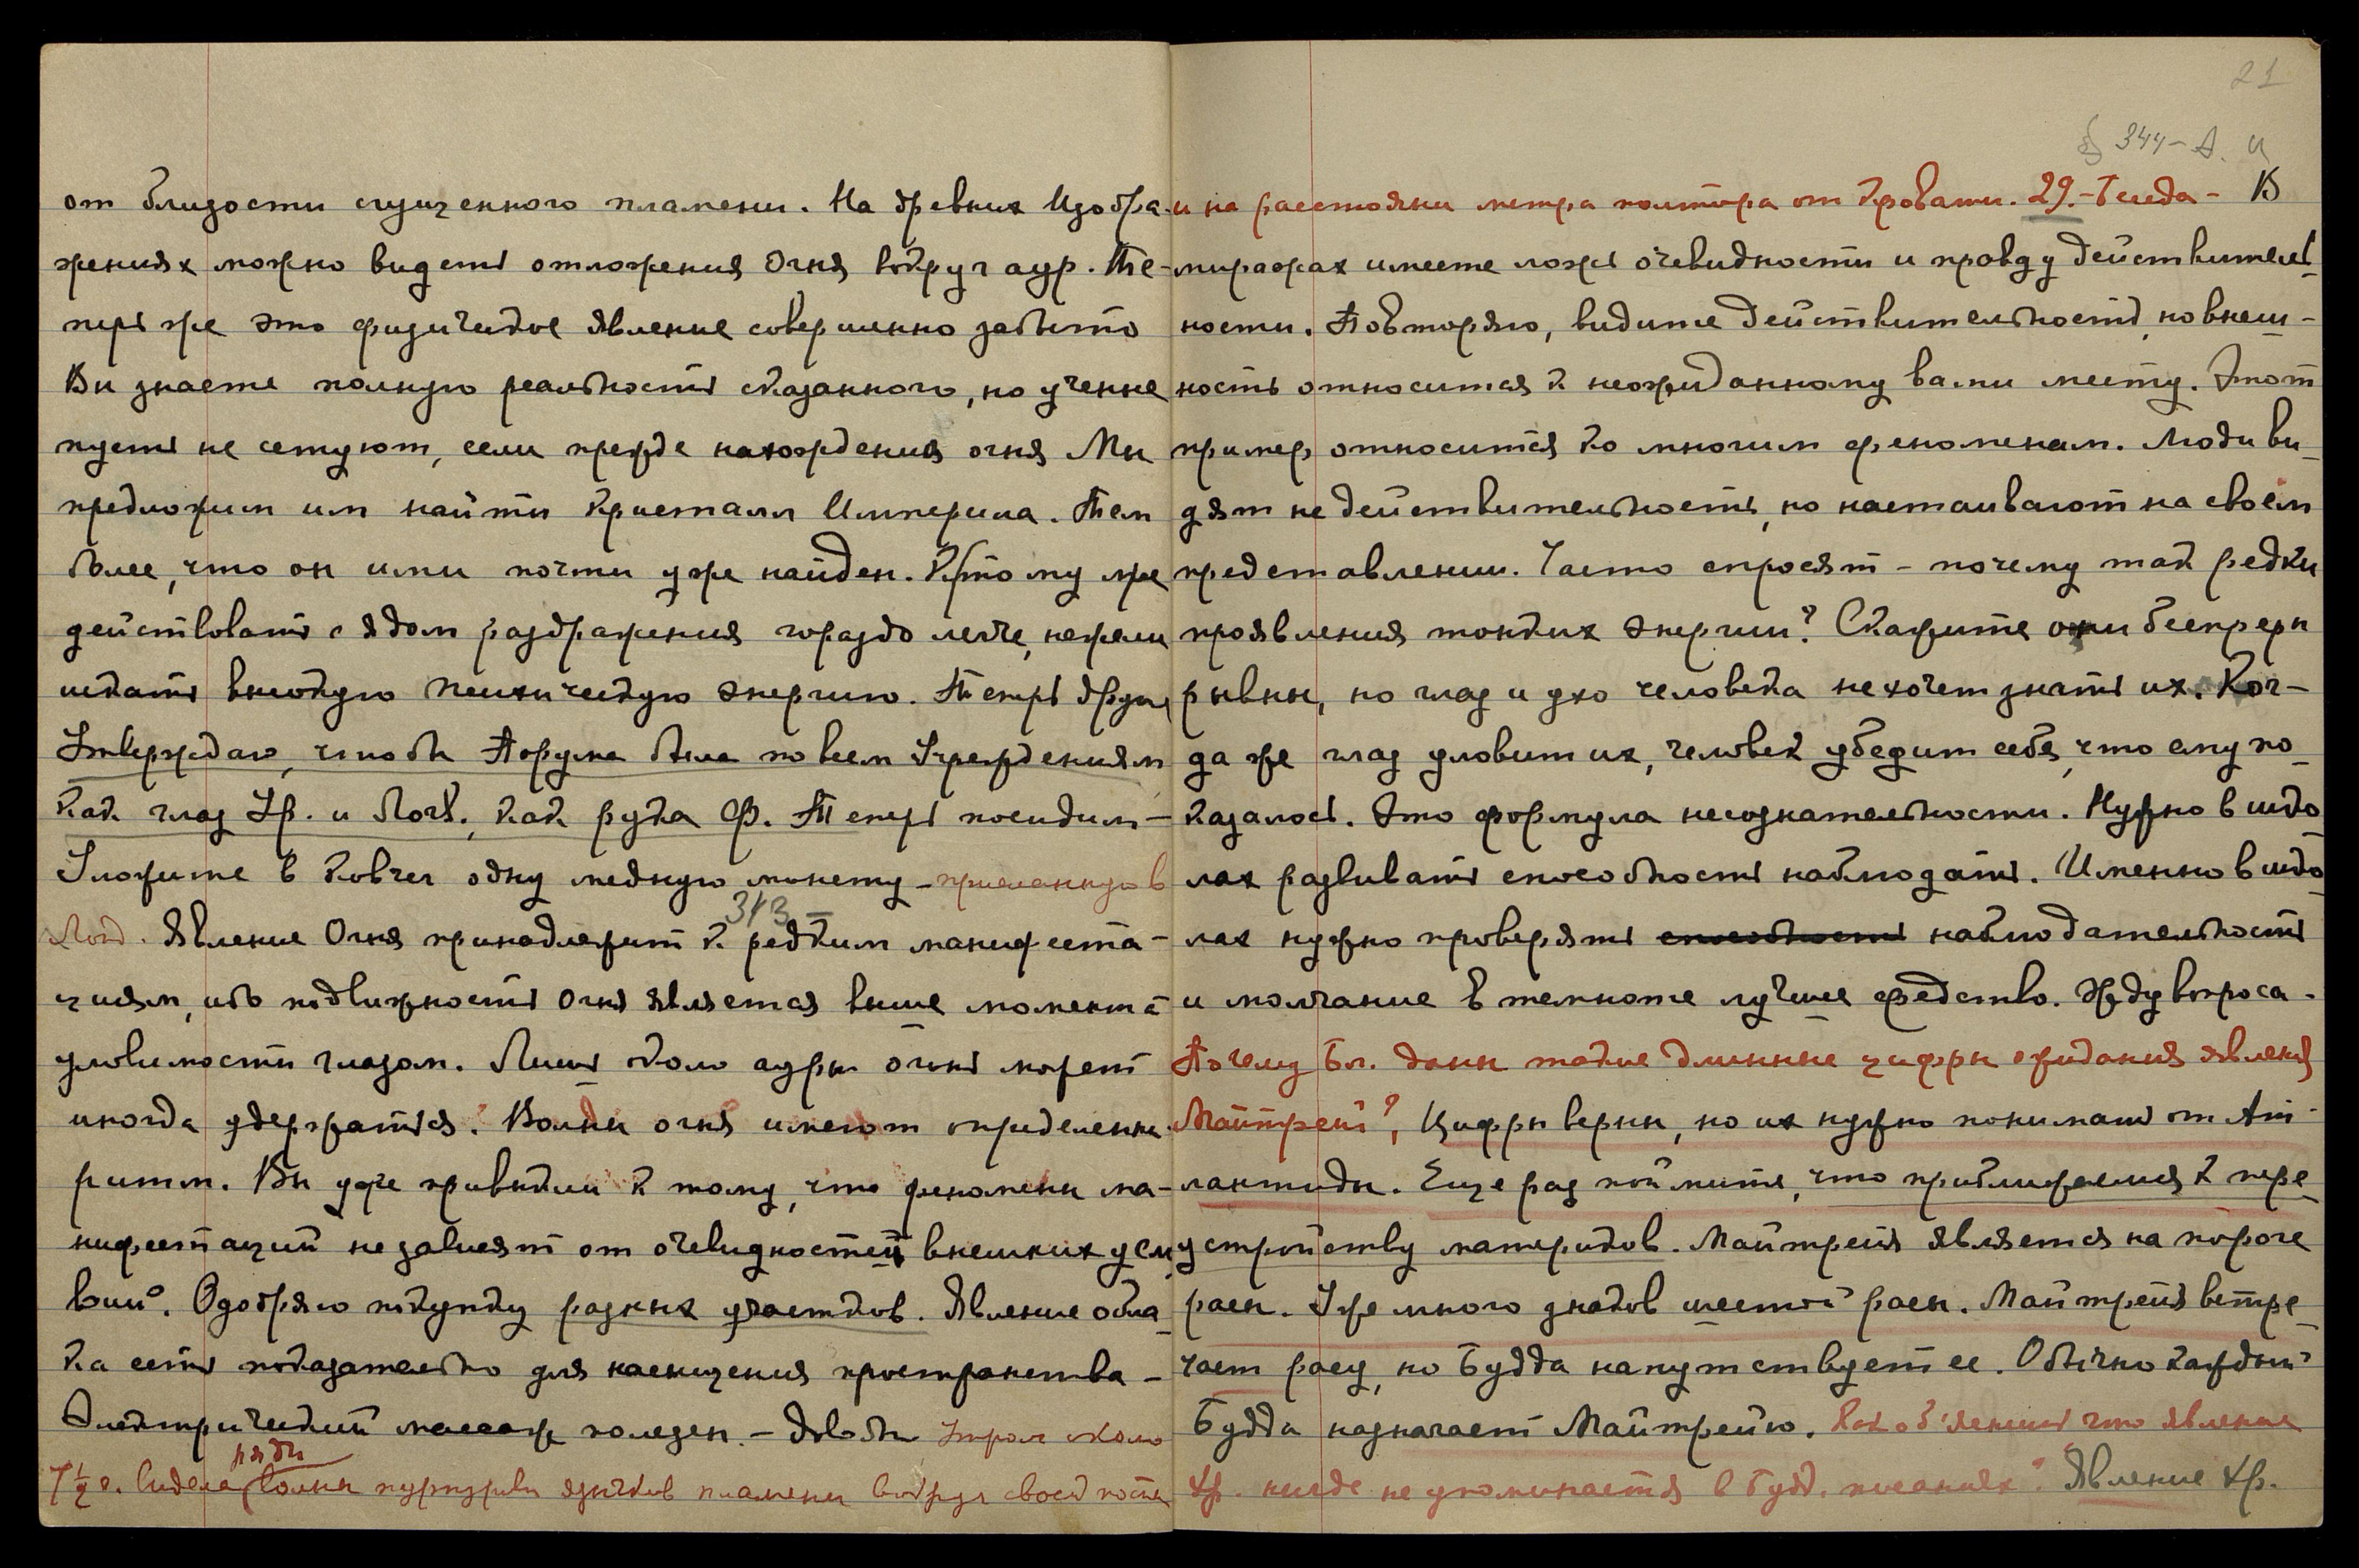 от близости сгущенного пламени. На древних Изобра-
жениях можно видеть отложения Огня вокруг аур. Те-
перь же это физическое явление совершенно забыто
Вы знаете полную реальность сказанного, но ученые
пусть не сетуют, если прежде нахождения огня Мы
предложим им найти кристалл Империла. Тем
более, что он ими почти уже найден. К тому же
действовать с ядом раздражения гораздо легче, нежели
искать высокую психическую энергию. Теперь другое
Утверждаю, чтобы Порума была по всем Учреждениям
как глаз Ур. и Логв., как рука Ф. Теперь посидим –
Уложите в Ковчег одну медную монету – присланную в
Лонд. 343 – Явление Огня принадлежит к редким манифеста-
циям, ибо подвижность Огня является выше момента
уловимости глазом. Лишь около ауры огонь может
иногда удержаться. Волны огня имеют определенный
ритм. Вы уже привыкли к тому, что феномены ма-
нифестаций не зависят от очевидностей внешних усло
вий. Одобряю покупку разных участков. Явление обла-
ка есть показательно для насыщения пространства –
Электрический массаж полезен. – Довольно Утром около
7 1/2 ч. видела ряды волны пурпуровых язычков пламени вокруг своей постели
21
§ 344 – А. Й
и на расстоянии метра полтора от кровати. 29. – Беседа – В
миражах имеете ложь очевидности и правду действитель-
ности. Повторяю, видите действительность, но внеш-
ность относится к неожиданному вами месту. Этот
пример относится ко многим феноменам. Люди ви-
дят не действительность, но настаивают на своем
представлении. Часто спросят – почему так редки
проявления тонких энергий? Скажите они беспреры
рывны, но глаз и ухо человека не хочет знать их. Ког-
да же глаз уловит их, человек убедит себя, что ему по-
казалось. Это формула несознательности. Нужно в шко
лах развивать способность наблюдать. Именно в шко-
лах нужно проверять способность наблюдательность
и молчание в темноте лучшее средство. Жду вопроса.
Почему Бл. даны такие длинные цифры ожидания явления
Майтрейи? Цифры верны, но их нужно понимать от Ат-
лантиды. Еще раз поймите, что приближаемся к пере-
устройству материков. Майтрейя является на пороге
расы. Уже много знаков шестой расы. Майтрейя встре-
чает расу, но Будда напутствует ее. Обычно каждый
Будда назначает Майтрейю. Как об'яснить что явление
Хр. нигде не упоминается в Будд. писаниях? Явление Хр.